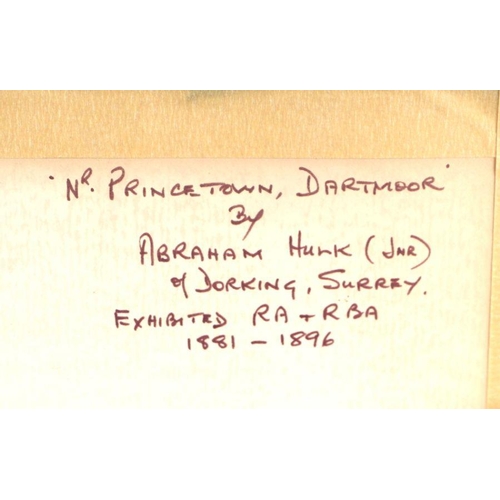 'NR. PRINCETOWN, DARTMOOR'
By
ABRAHAM HULK (JNR)
of DORKING, SURREY.
EXHIBITED RA + RBA
1881 - 1896